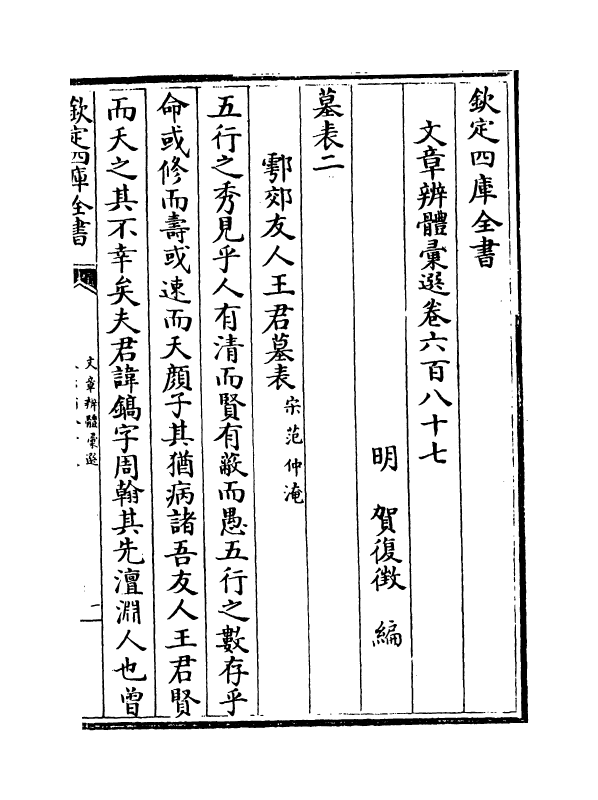 欽定四庫全書
文章辨體彚選卷六百八十七
明 賀復徴 編
墓表二
鄠郊友人王君墓表 宋范仲淹
五行之秀見乎人有清而賢有蔽而愚五行之數存乎
命或修而壽或速而夭顔子其猶病諸吾友人王君賢
而夭之其不幸矣夫君諱鎬字周翰其先澶淵人也曾
欽定四庫全書
文章辨體彚選